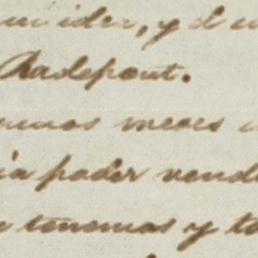 idea, y d
Radepont.
unos meses
ia poder vend
tenemos y to